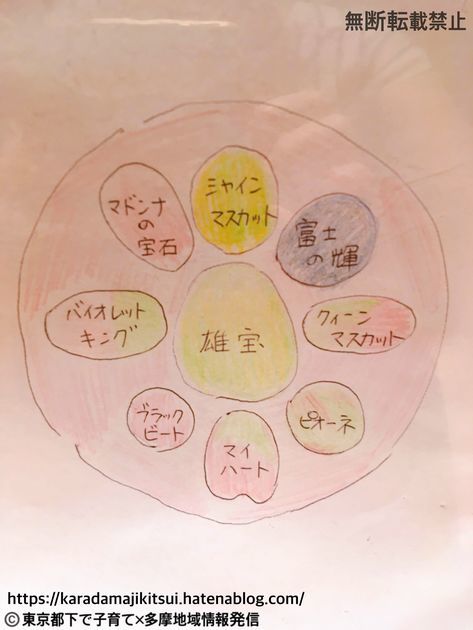 無断転載禁止
シャイン
マスカット
マドンナ
の
宝石
富士
の輝
バイオレット
キング
雄宝
クィーン
マスカット
ブラック
ビート
マイ
ハート
ピオーネ
https://karadamajikitsui.hatenablog.com/
©東京都下で子育て×多摩地域情報発信